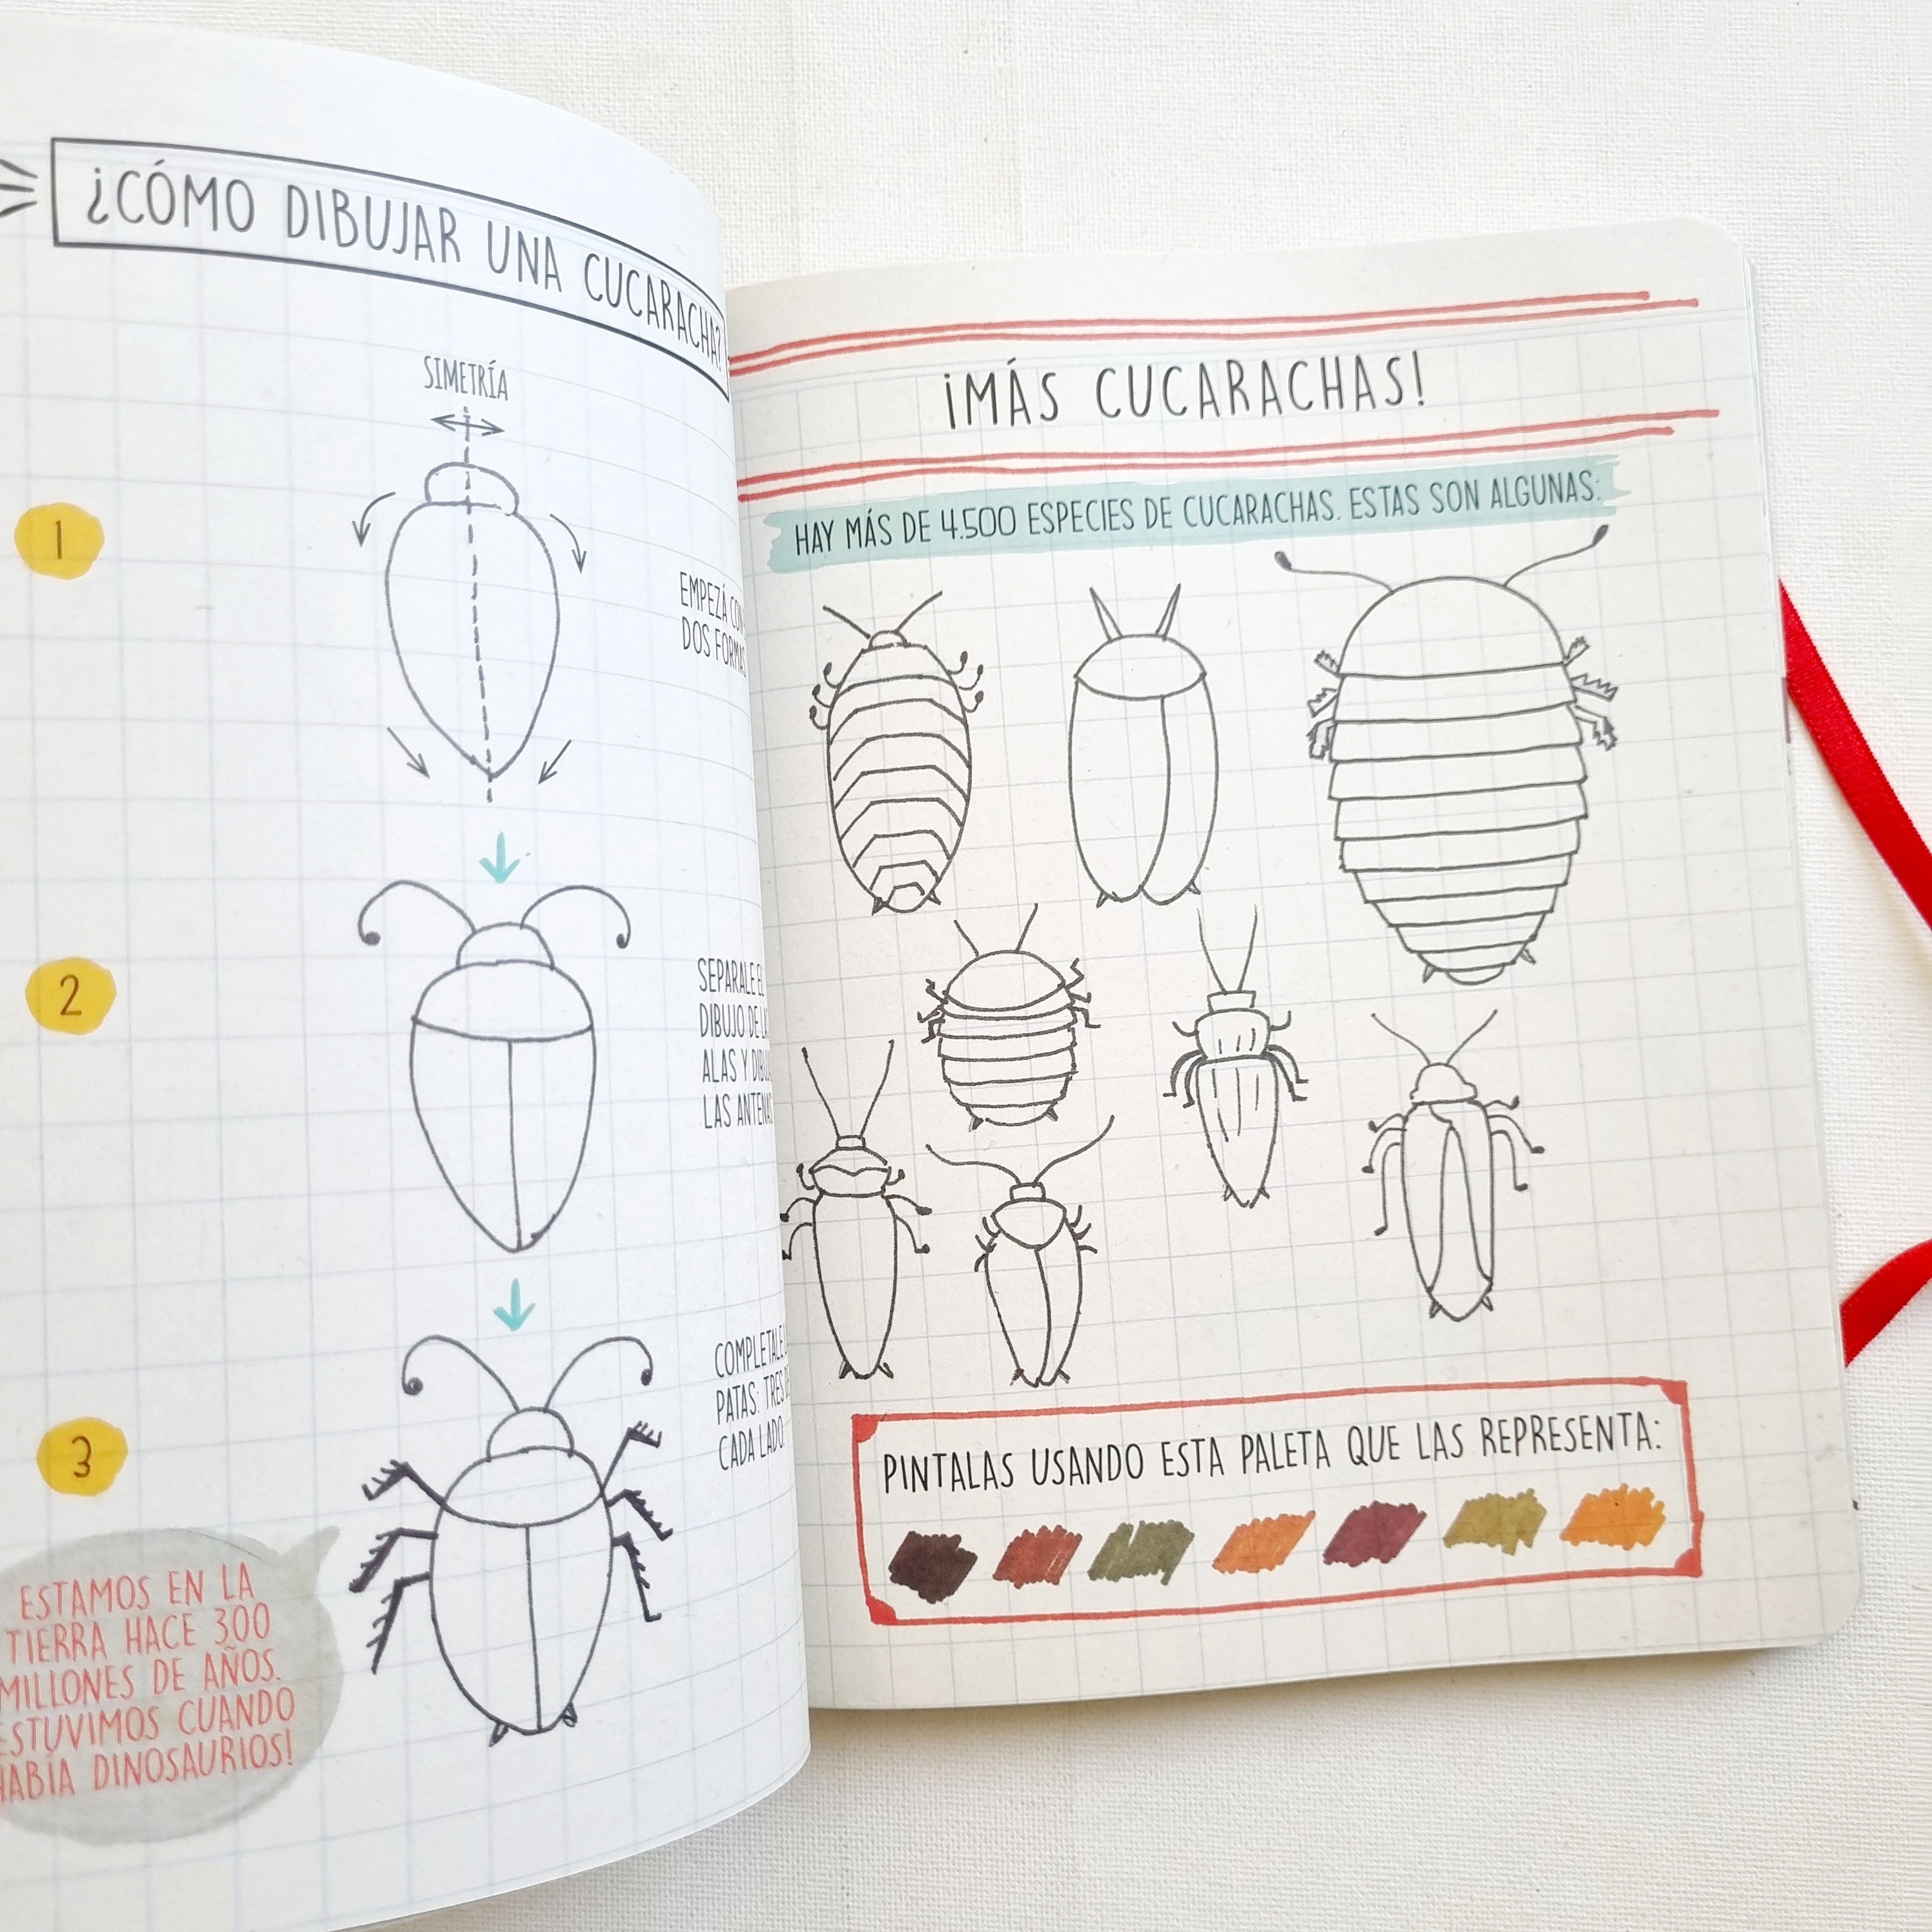 ¿CÓMO DIBUJAR UNA CUCARACHA?
SIMETRÍA
1
EMPEZÁ CON
DOS FORMAS
2
SEPARALE EL
DIBUJO DE LAS
ALAS Y DIBUJÁ
LAS ANTENAS
3
COMPLETALE
PATAS: TRES DE
CADA LADO.
ESTAMOS EN LA
TIERRA HACE 300
MILLONES DE AÑOS.
ESTUVIMOS CUANDO
HABÍA DINOSAURIOS!
¡MÁS CUCARACHAS!
HAY MÁS DE 4.500 ESPECIES DE CUCARACHAS. ESTAS SON ALGUNAS:
PINTALAS USANDO ESTA PALETA QUE LAS REPRESENTA: